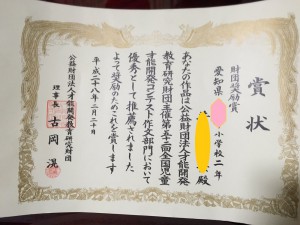 賞状
財団奨励賞
愛知県
小学校二年
殿
あなたの作品は公益財団法人才能開発
教育研究財団主催第五十二回全国児童
才能開発コンテスト作文部門において
優秀として推薦されました
よって奨励のためこれを賞します
平成二十八年二月二十日
公益財団法人才能開発教育研究財団
理事長 古岡滉